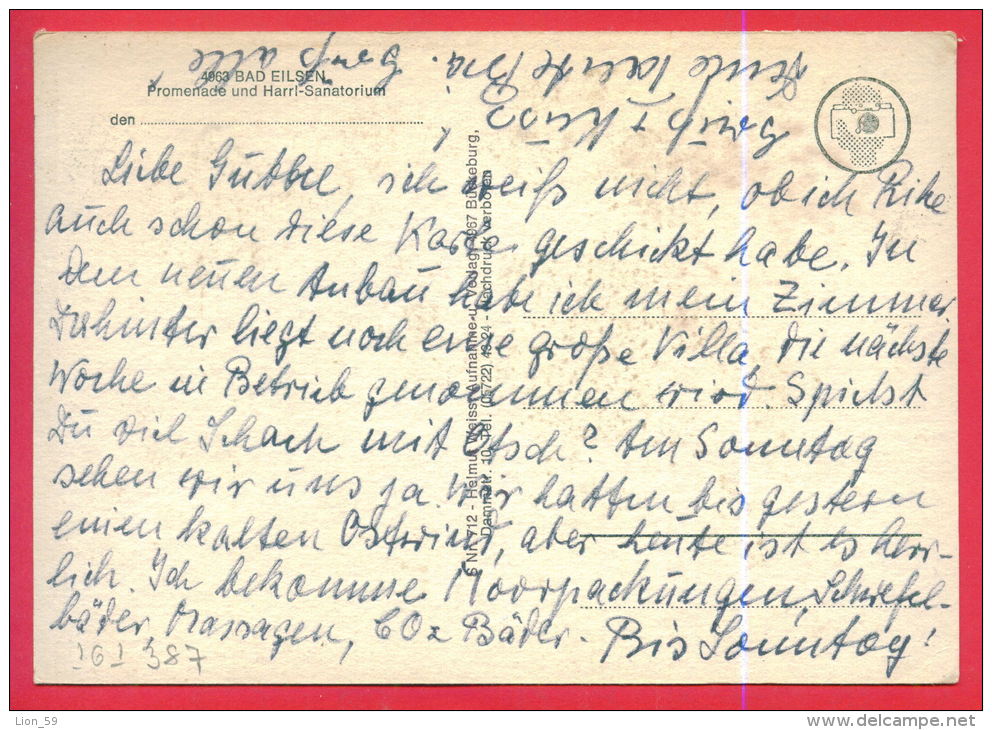 4963 BAD EILSEN
Promenade und Harrl-Sanatorium
den
Liebe Gudbee, ich weiß nicht, ob ich Rike
auch schon diese Karte geschickt habe. In
dem neuen Anbau habe ich mein Zimmer.
Dahinter liegt noch eine große Villa, die nächste
Woche in Betrieb genommen wird. Spielst
Du viel Schach mit ? Am Sonntag
sehen wir uns ja. Wir hatten bis gestern
einen kalten Ostwind, aber heute ist es herr-
lich. Ich bekomme Moorpackungen, Schwefel-
bäder, Massagen, CO2 Bäder. Bis Sonntag!
Gruß + Kuss
Deine Tante
Grüß alle
S Nr. 712 - Helmut Weisst, Aufnahme u. Verlag, 4967 Bückeburg,
Dammstr. 10, Tel. (05722) 4324 - Nachdruck verboten
161 387
Lion_59
delcampe.net